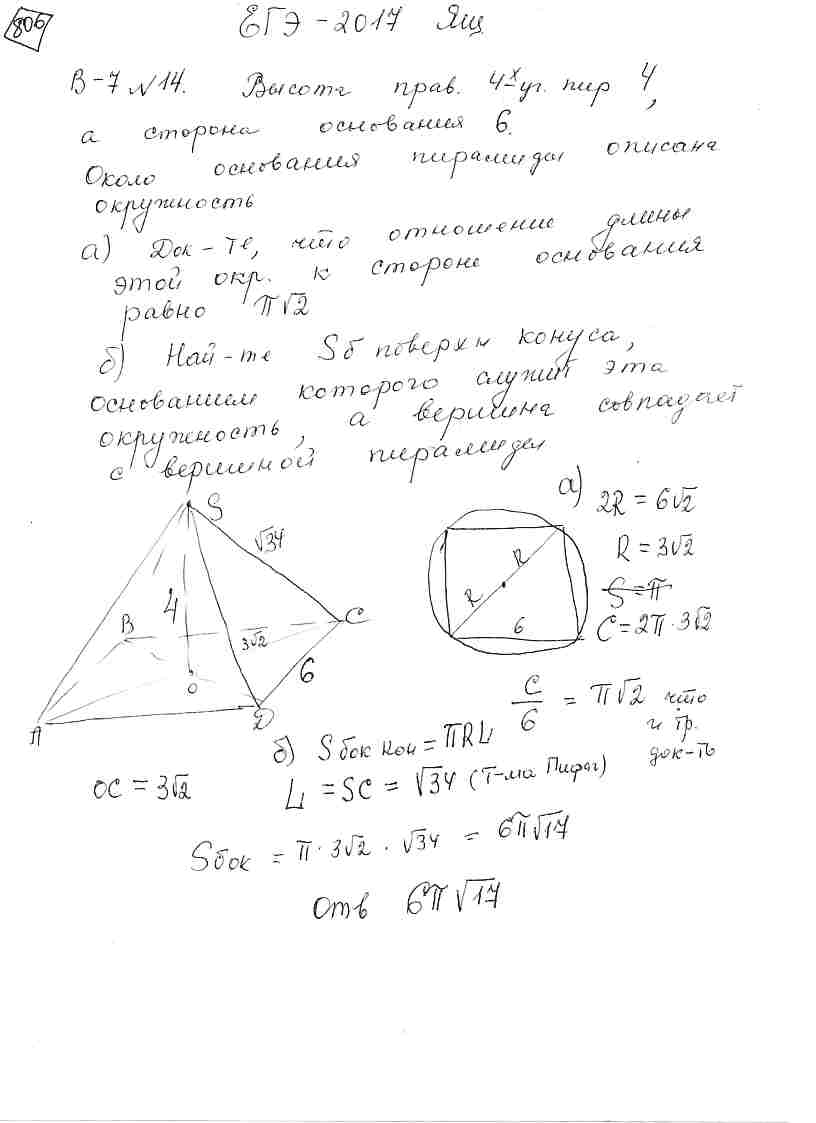 806
ЕГЭ - 2017 Ящ
В-7 №14. Высота прав. 4-х уг. пир 4,
а сторона основания 6.
Около основания пирамиды описана
окружность
а) Док-те, что отношение длины
этой окр. к стороне основания
равно π√2
б) Най-те Sб поверхн конуса,
основанием которого служит эта
окружность, а вершина совпадает
с вершиной пирамиды
S
√34
4
B
C
3√2
6
O
A
D
OC = 3√2
R
R
6
а) 2R = 6√2
R = 3√2
S = π
C = 2π · 3√2
C/6 = π√2 что
и тр.
док-ть
б) Sбок кон = πRL
L = SC = √34 (т-ма Пифаг)
Sбок = π · 3√2 · √34 = 6π√17
Отв 6π√17